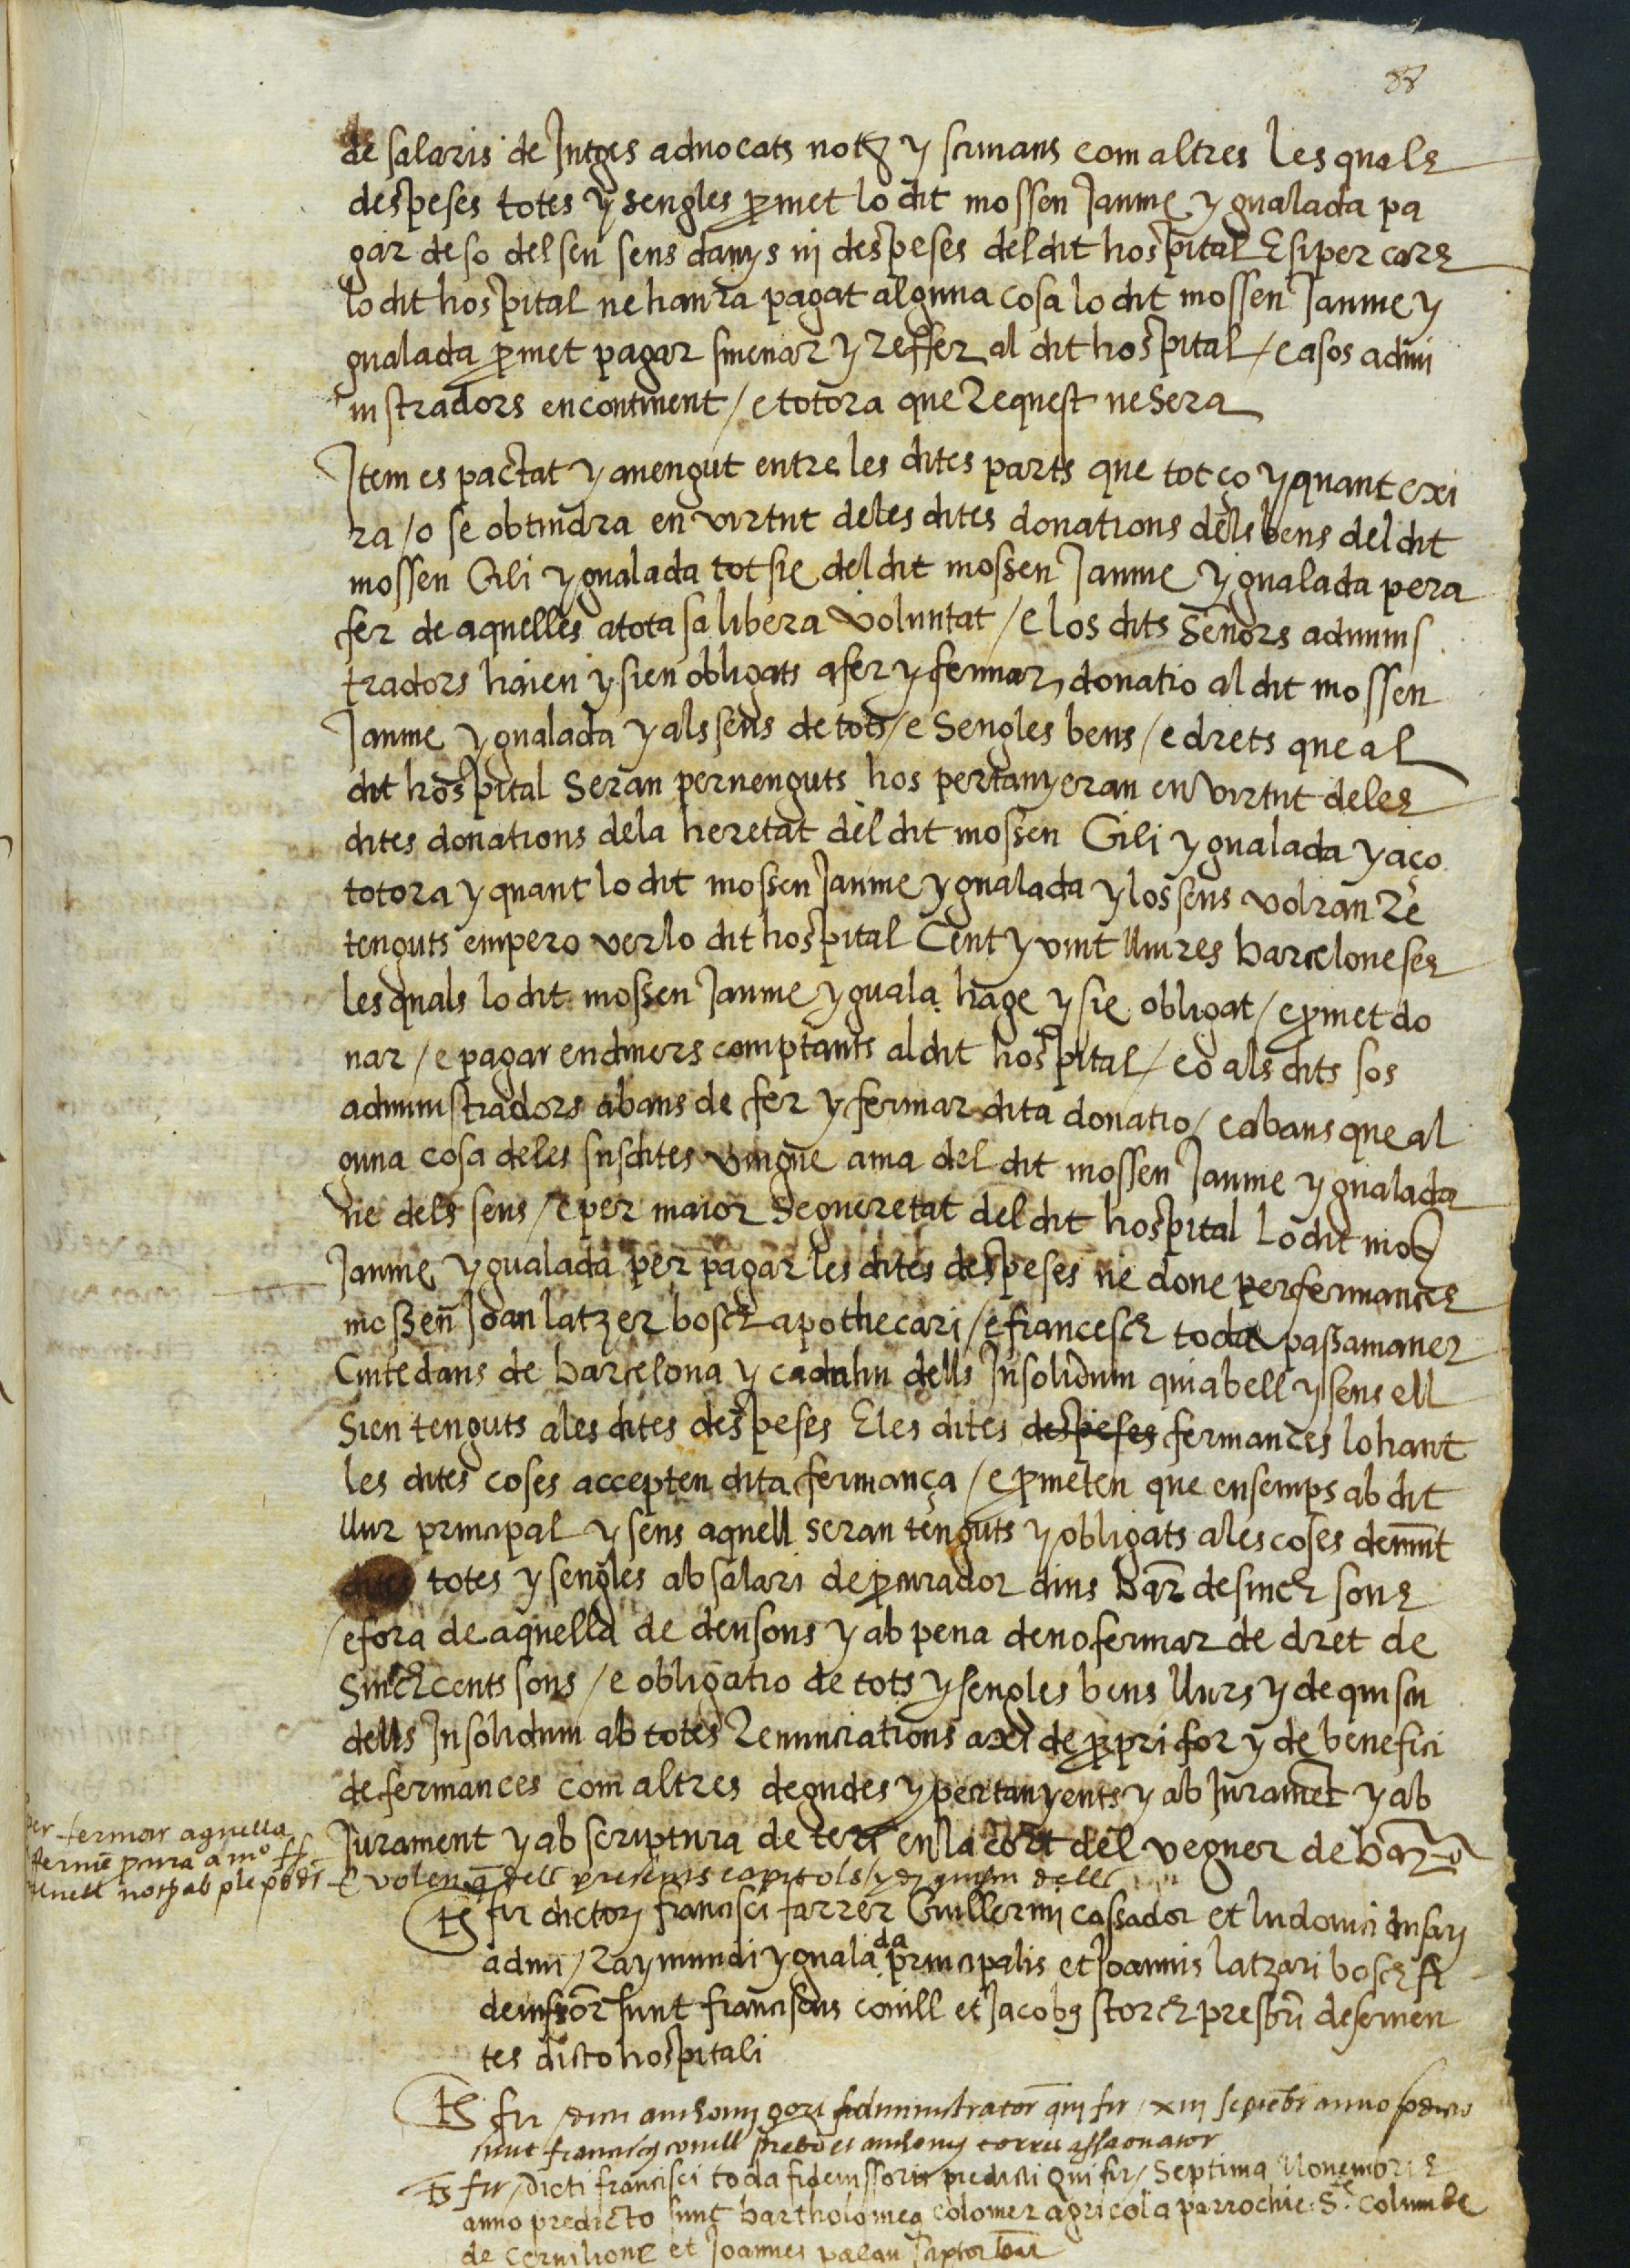 88
de salaris de Jutges aduocats not͛ y scriuans com altres les quals
despeses totes y sengles ꝑmet lo dit mossen Jaume ygualada pa
gar de so del seu sens danys nj despeses del dit hospital E si per cars
lo dit hospital ne haura pagat alguna cosa lo dit mossen Jaume y
gualada ꝑmet pagar smenar y reffer al dit hospital / e a sos admi
nistradors encontinent / e totora que request ne sera
Jtem es pactat y auengut entre les dites parts que tot ço y quant exi
ra / o se obtindra en virtut de les dites donations dels bens del dit
mossen Gili ygualada tot sie del dit mossen Jaume ygualada pera
fer de aquelles a tota sa libera voluntat / e los dits Señors adminis
tradors haien y sien obligats a fer y fermar donatio al dit mossen
Jaume ygualada y als seus de tots / e sengles bens / e drets que al
dit hospital seran peruenguts hos pertanyeran en virtut de les
dites donations de la heretat del dit mossen Gili ygualada y aço
totora y quant lo dit mossen Jaume ygualada y los seus volran re
tenguts empero ver lo dit hospital Cent y vint lliures barceloneses
les quals lo dit mossen Jaume yguala hage y sie obligat / e ꝑmet do
nar / e pagar en diners comptants al dit hospital / eo als dits sos
administradors abans de fer y fermar dita donatio / e abans que al
guna cosa de les susdites vingue a ma del dit mossen Jaume ygualada
ne dels seus / e per maior segueretat del dit hospital lo dit moss͛
Jaume ygualada per pagar les dites despeses ne done per fermances
mossen Joan latzer bosch apothecari / e francesch toda passamaner
Ciutedans de barcelona y cadahu dells Insolidum qui ab ell y sens ell
sien tenguts a les dites despeses E les dites despeses fermances lohant
les dites coses accepten dita fermança / e ꝑmeten que ensemps ab dit
llur principal y sens aquell seran tenguts y obligats a les coses demūt
dites totes y sengles ab salari de ꝓcurador dins bar͛ de sinch sous
/ e fora de aquella de deu sous y ab pena de no fermar de dret de
sinch cents sous / e obligatio de tots y sengles bens llurs y de quiscu
dells Insolidum ab totes renunciations axi de ꝓpri for y de benefici
de fermances com altres degudes y pertanyents y ab Jurament y ab
Jurament y ab scriptura de terç en la cort del veguer de bar͛na
per fermar aquella
E volen q̄ dels presents capitols / y de quiscu dells
tes͛ fir dictor͛ francisci farrer Guillermi cassador et ludouici
admi / Raymundi ygualada principalis et Joannis latzari bosch fi
deiussor͛ sunt franciscus conill et Jacobꝰ storch presbrī deseruien
tes dicto hospitali
tes͛ fir / dicti anthonij gori administrator͛ qui fir / xiij septēbr anno p̄dicto
sunt franciscꝰ conill prebr̄ et anthonij torres assaonator
tes͛ fir / dicti francisci toda fideiussoris predicti qui fir / septima Nouembris
anno predicto sunt bartholomeꝰ colomer agricola parrochie Ste columbe
de ceruilione et Joannes palau scriptor bar͛